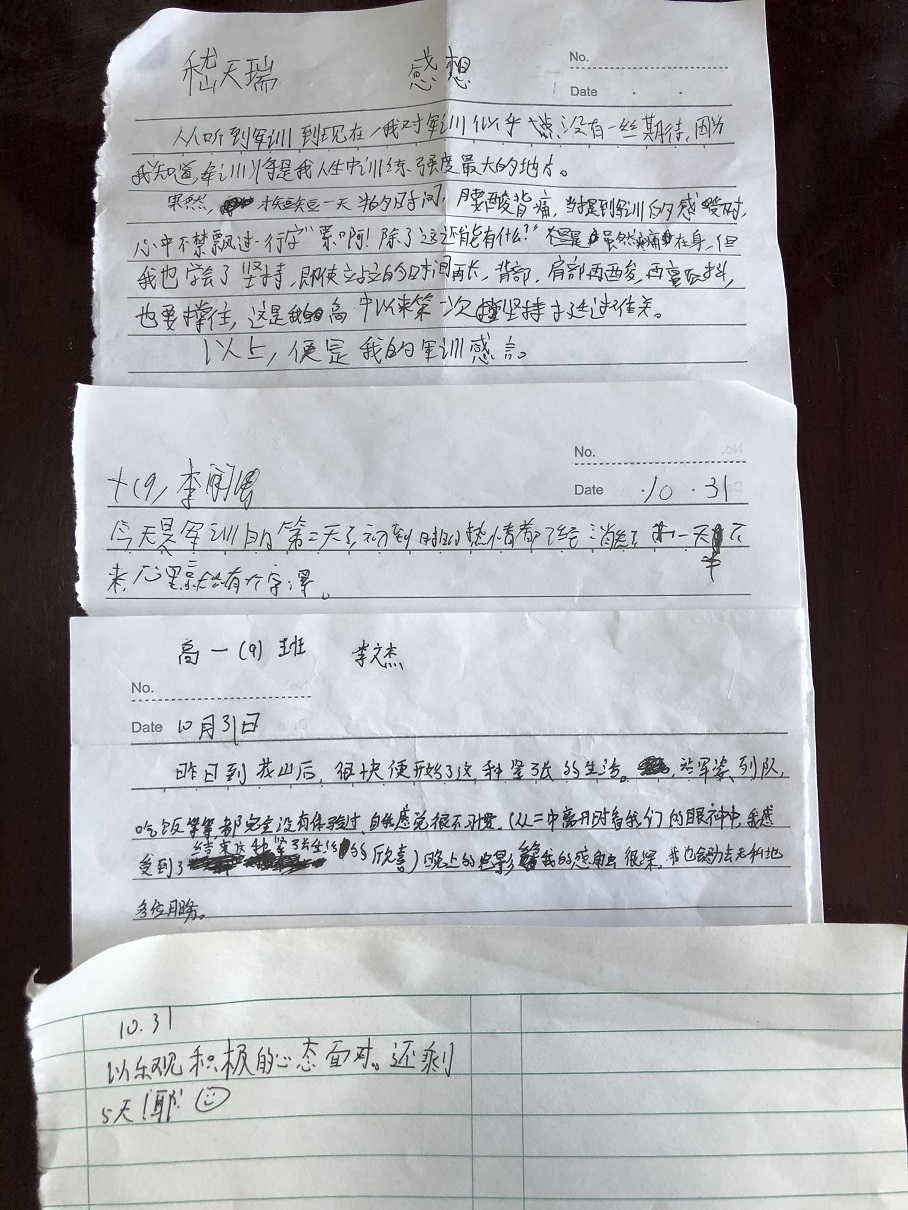 嵇天瑞 感想
No.
Date
从听到军训到现在,我对军训似乎一点没有一丝期待,因为
我知道,军训将是我人生中训练强度最大的地方。
果然,短短一天半的时间,腰酸背痛,当提到军训的感受时,
心中不禁飘过一行字"累啊!除了这还能有什么?"虽然痛在身,但
我也学会了坚持,即使站立的时间再长,背部,肩部再酸,再
也要撑住,这是我高中以来第一次坚持
以上,便是我的军训感言。
No.
Date 10.31
十(9) 李
今天是军训的第二天了,初到时的热情都已经消失了 一天半下
来,心里就有个字:累。
高一(9)班 李文杰
No.
Date 10月31日
昨日到茅山后,很快便开始了这种紧张的生活。站军姿、列队,
吃饭等等都完全没有体验过,自我感觉很不习惯,(从二中离开时看我们的眼神中,我感
受到了结束这种紧张生活的欣喜)晚上的电影给我的感触很深,我也会
10.31
以乐观积极的心态面对。还剩
5天!耶!